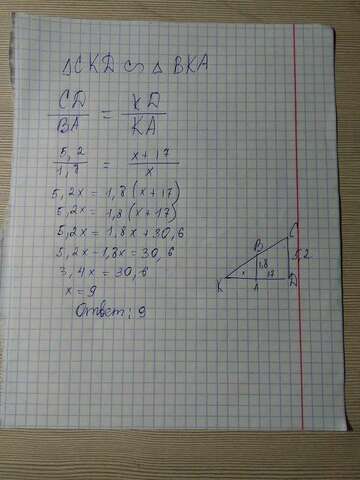 △CKD ∽ △BKA
CD/BA = KD/KA
5,2/1,8 = x+17/x
5,2x = 1,8(x+17)
5,2x = 1,8(x+17)
5,2x = 1,8x + 30,6
5,2x - 1,8x = 30,6
3,4x = 30,6
x = 9
Ответ: 9
C
B
5,2
1,8
x
17
K
A
D